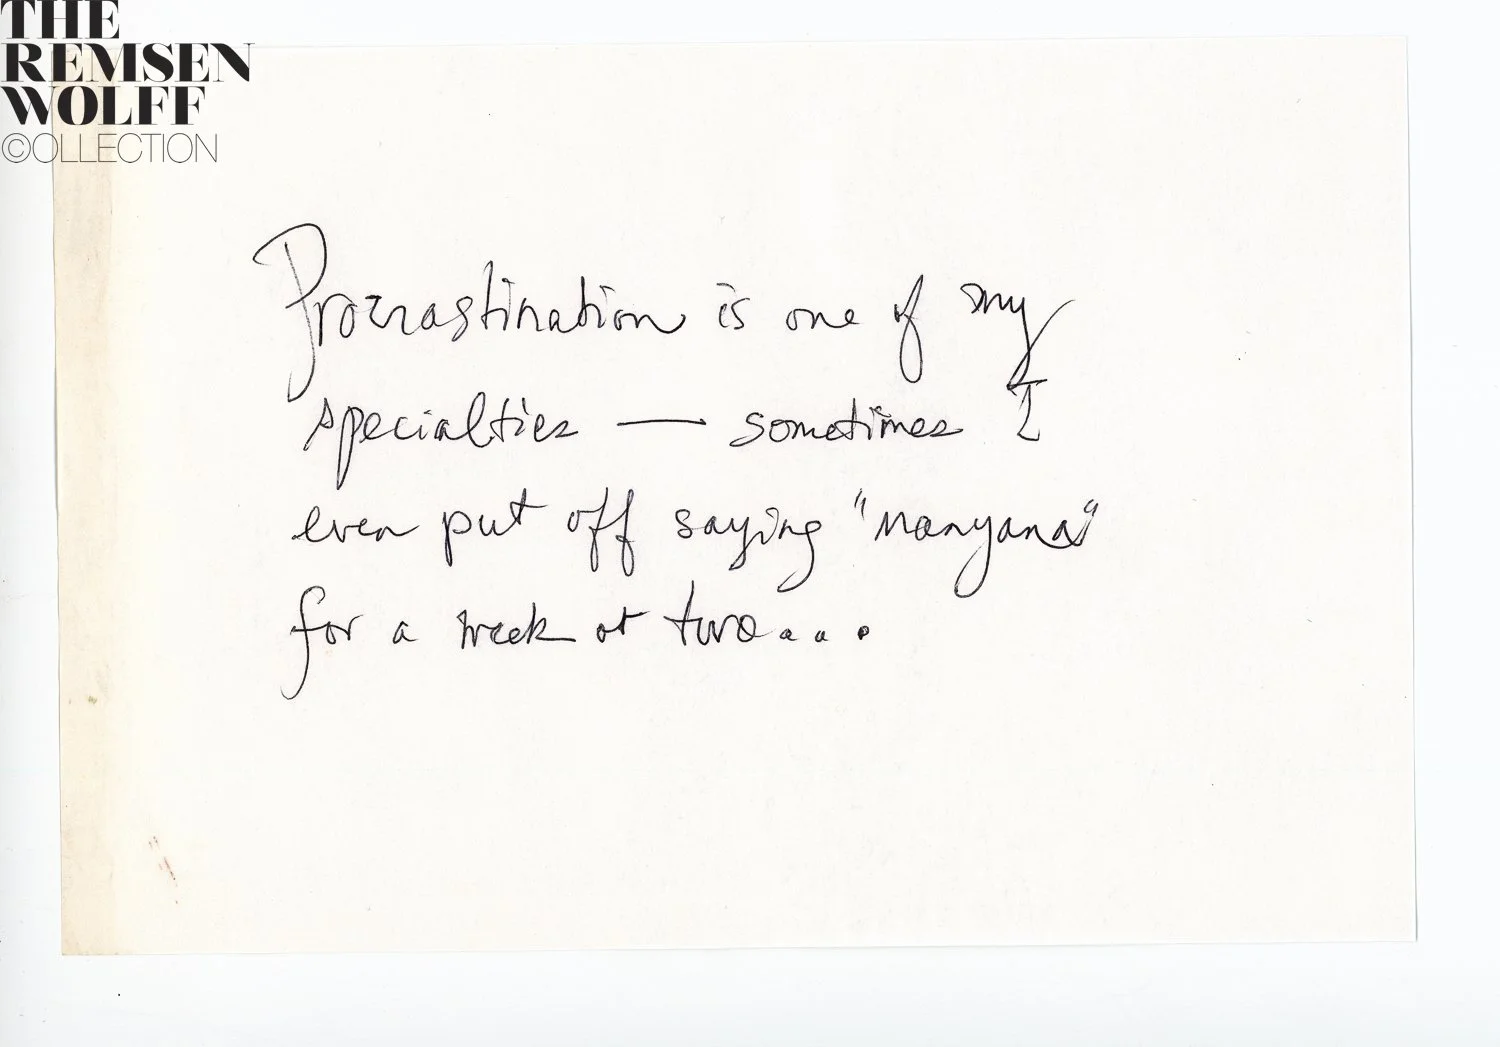 THE
REMSEN
WOLFF
©OLLECTION
Procrastination is one of my
specialties — sometimes I
even put off saying "manyana"
for a week or two...